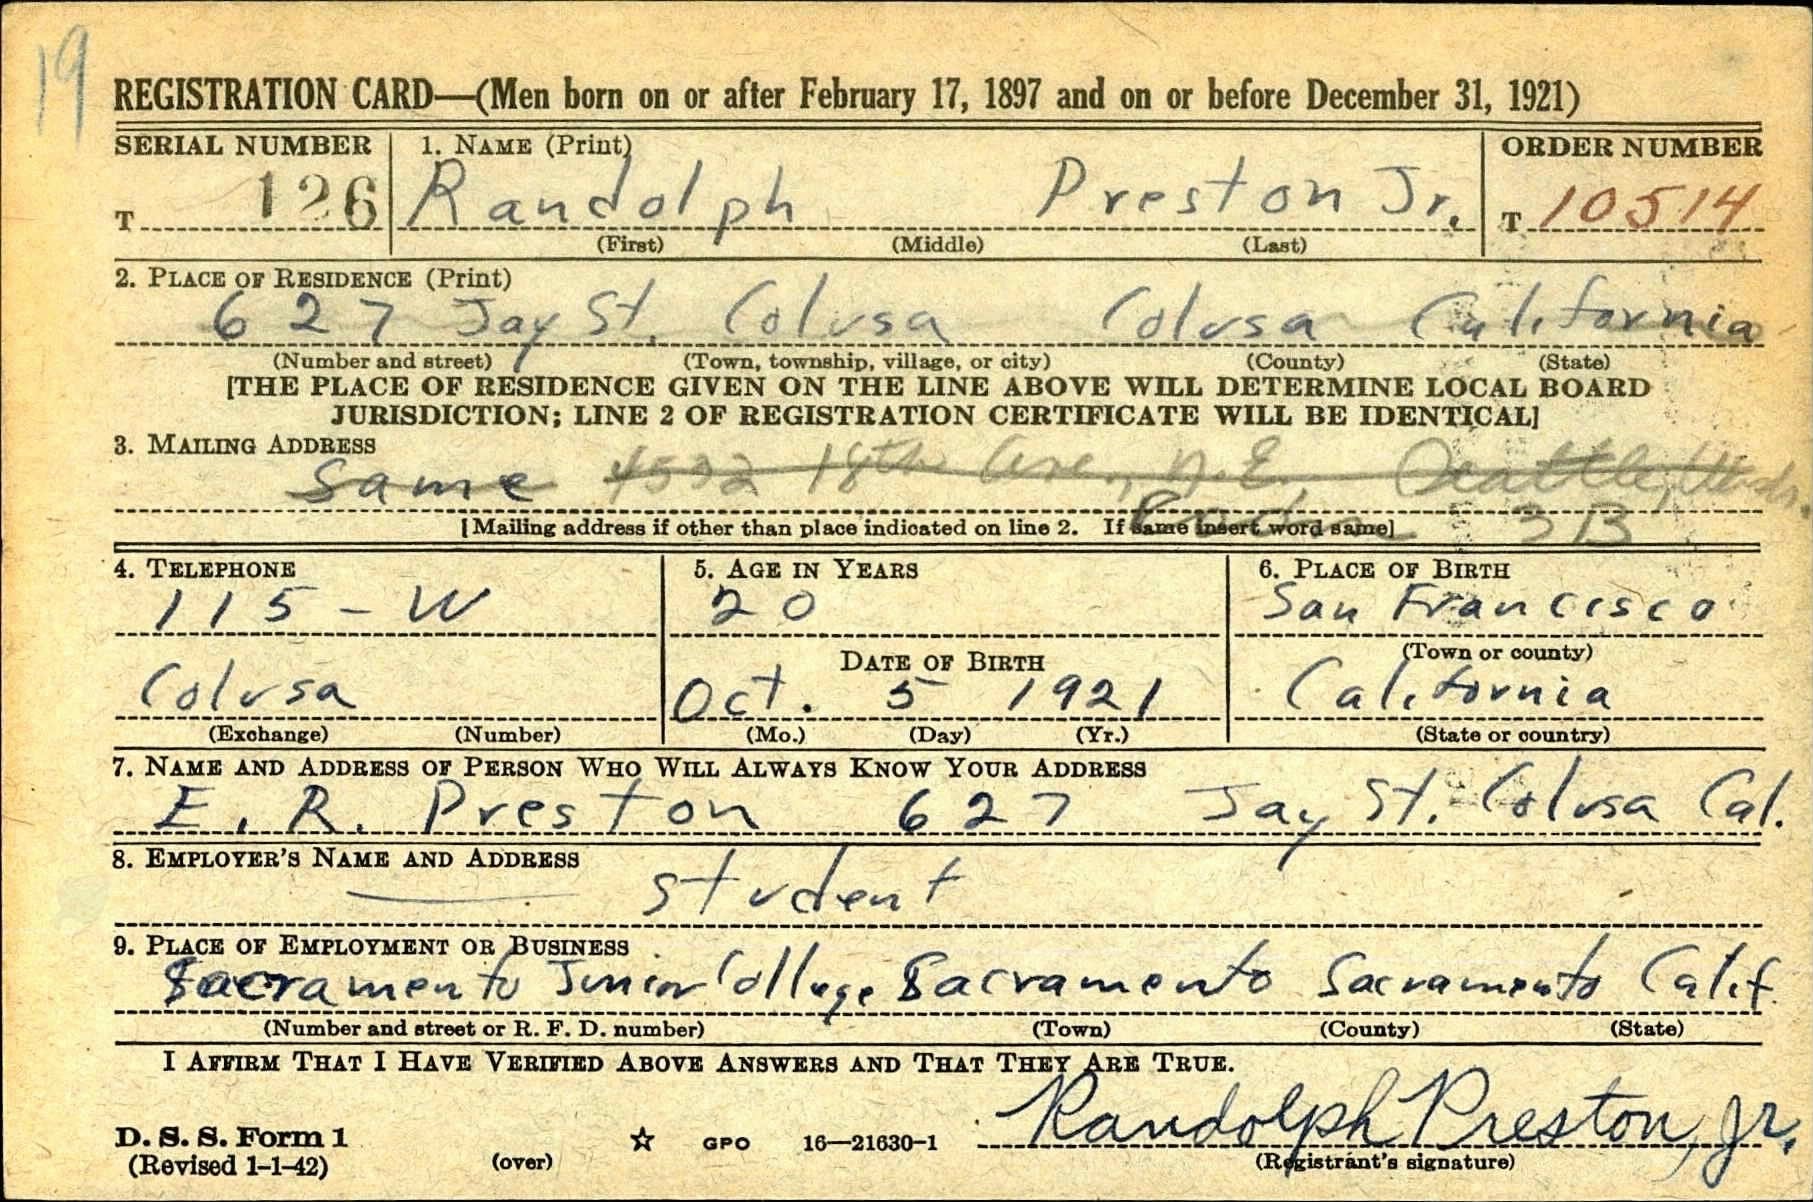 19
REGISTRATION CARD—(Men born on or after February 17, 1897 and on or before December 31, 1921)
SERIAL NUMBER 1. NAME (Print) ORDER NUMBER
T 126 Randolph Preston Jr. T 10514
(First) (Middle) (Last)
2. PLACE OF RESIDENCE (Print)
627 Jay St. Colusa Colusa California
(Number and street) (Town, township, village, or city) (County) (State)
[THE PLACE OF RESIDENCE GIVEN ON THE LINE ABOVE WILL DETERMINE LOCAL BOARD
JURISDICTION; LINE 2 OF REGISTRATION CERTIFICATE WILL BE IDENTICAL]
3. MAILING ADDRESS
Same 18th Ave., N.E. Seattle,
3B
[Mailing address if other than place indicated on line 2. If same insert word same]
4. TELEPHONE 5. AGE IN YEARS 6. PLACE OF BIRTH
115-W 20 San Francisco
DATE OF BIRTH (Town or county)
Colusa Oct. 5 1921 California
(Exchange) (Number) (Mo.) (Day) (Yr.) (State or country)
7. NAME AND ADDRESS OF PERSON WHO WILL ALWAYS KNOW YOUR ADDRESS
E. R. Preston 627 Jay St. Colusa Cal.
8. EMPLOYER'S NAME AND ADDRESS
Student
9. PLACE OF EMPLOYMENT OR BUSINESS
Sacramento Junior College Sacramento Sacramento Calif.
(Number and street or R. F. D. number) (Town) (County) (State)
I AFFIRM THAT I HAVE VERIFIED ABOVE ANSWERS AND THAT THEY ARE TRUE.
Randolph Preston, Jr.
D. S. S. Form 1 GPO 16—21630-1
(Revised 1-1-42) (over) (Registrant's signature)